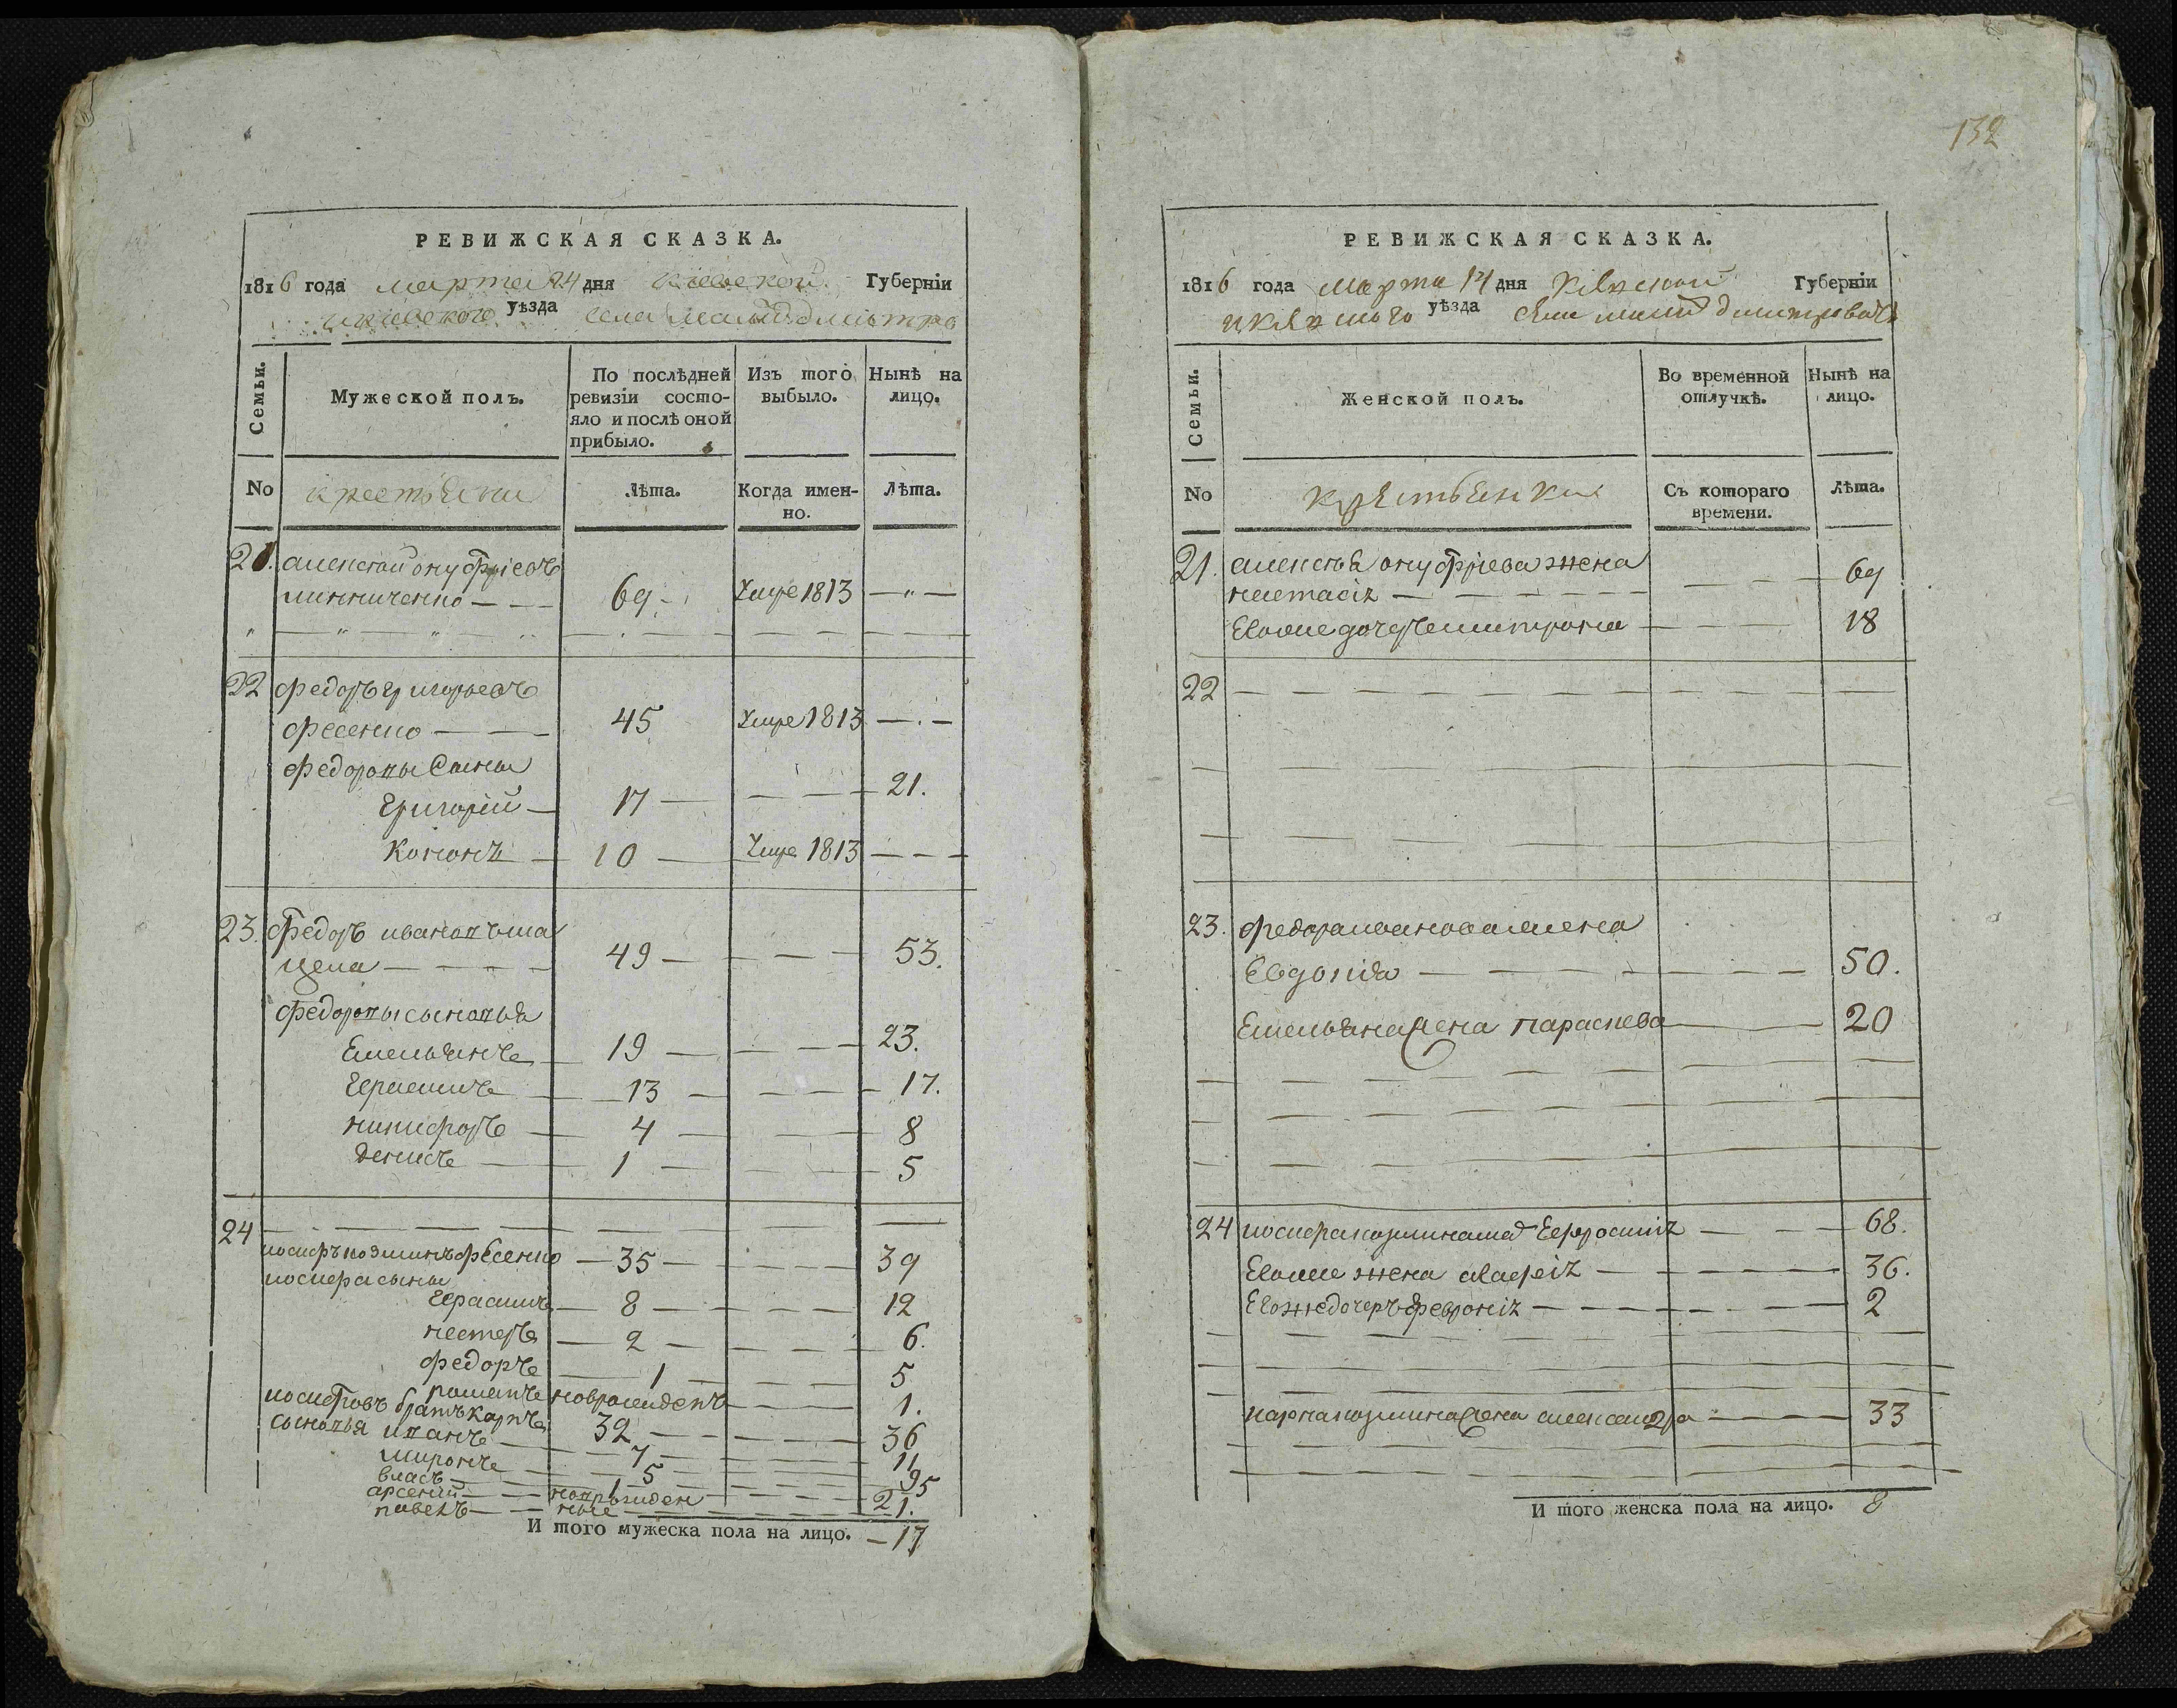 132
РЕВИЖСКАЯ СКАЗКА.
1816 года марта 24 дня Кіевской Губерніи
и кіевского уѣзда села малой дмитро
Семьи. Мужеской полъ. По послѣдней ревизіи состояло и послѣ оной прибыло. Изъ того выбыло. Нынѣ на лицо.
No крестьяни Лѣта. Когда именно. Лѣта.
21. алексѣй онуфріевъ
линниченко — — — 69 Умре 1813 — „ —
22 федоръ григорьевъ
фесенко — — 45 Умре 1813 — . —
федоровы Сыны
григорій — 17 — — — — 21.
Кононъ — 10 — Умре 1813 — — —
23. Федоръ ивановъ ма
цепа — — — — 49 — — — — 53.
федоровы сыновья
Емельянъ — 19 — — — — 23.
Герасимъ — 13 — — — — 17.
никифоръ — 4 — — — 8
денисъ — 1 — — — 5
24 — — — — — — — —
иосифъ козминъ фесенко — 35 — — — — 39
иосифа сыны
Герасимъ — 8 — — — — 12
нестеръ — 2 — — — — 6.
федоръ — 1 — — — — 5
романъ новрожденъ — — — 1.
иосифовъ братъ карпъ 32 — — — — 36
сыновья иванъ — 7 — — — 11
миронъ — 5 — — — 9
власъ — 1 — — — 5
арсеній — — новрожден — — — 2
павелъ — — ные — — — 1.
И того мужеска пола на лицо. — 17
РЕВИЖСКАЯ СКАЗКА.
1816 года Марта 14 дня Кіевской Губерніи
и Кіевского уѣзда села малой дмитровъки
Семьи. Женской полъ. Во временной отлучкѣ. Нынѣ на лицо.
No крестьянки Съ котораго времени. Лѣта.
21. алексѣя онуфріева жена
настасія — — — — — — — — 69
Евоже дочерь митрона — — — 18
22 — — — — — — — — —
23. федора иванова жена
Евдокія — — — — — — — 50.
Емельяна жена параскева — — 20
24 иосифа козмина мат Ефросинія — — — 68.
Евоже жена агафія — — — — — 36.
Евожедочеръ феврoнія — — — — — — 2
карпа козмина жена александра — — — — 33
И того женска пола на лицо. 8